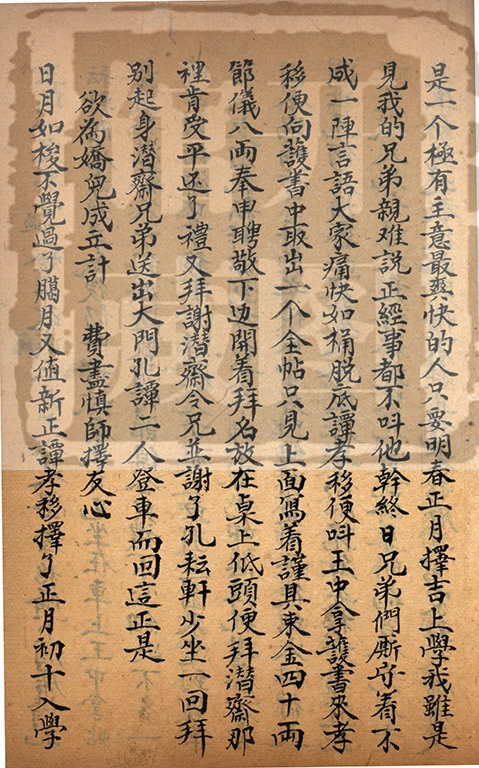 是一个極有主意最爽快的人只要明春正月擇吉上學我雖是
見我的兄弟親难説正經事都不呌他幹終日兄弟們厮守着不
成一陣言語大家痛快如桶脱底譚孝移便呌王中拿護書來孝
移便向護書中取出一个全帖只見上面寫着謹具束金四十兩
節儀八兩奉申聘敬下边開着拜名放在桌上低頭便拜潜齋那
裡肯受平还了禮又拜謝潜齋令兄並謝了孔耘軒少坐一回拜
别起身潜齋兄弟送出大門孔譚二人登車而回這正是
欲為嬌兒成立計 費盡慎師擇友心
日月如梭不覺過了臈月又值新正譚孝移擇了正月初十入學